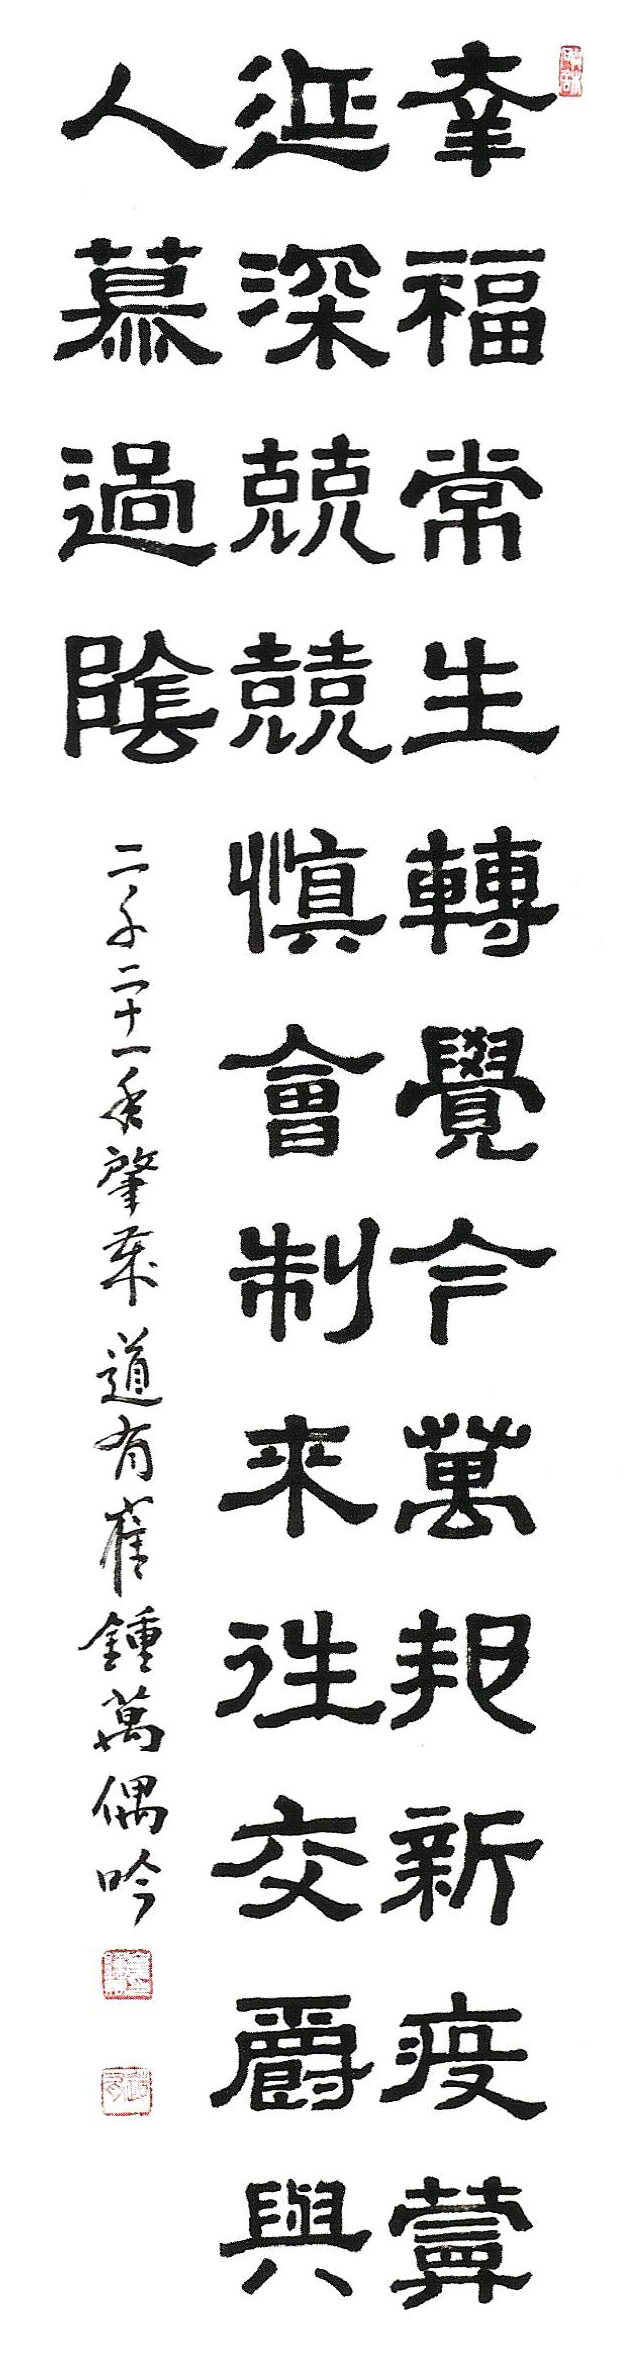 幸福常生轉覺今萬邦新疫蔓
延深兢兢愼會制來往交爵與
人慕過陰
二千二十一年肇 道有崔鍾萬偶吟